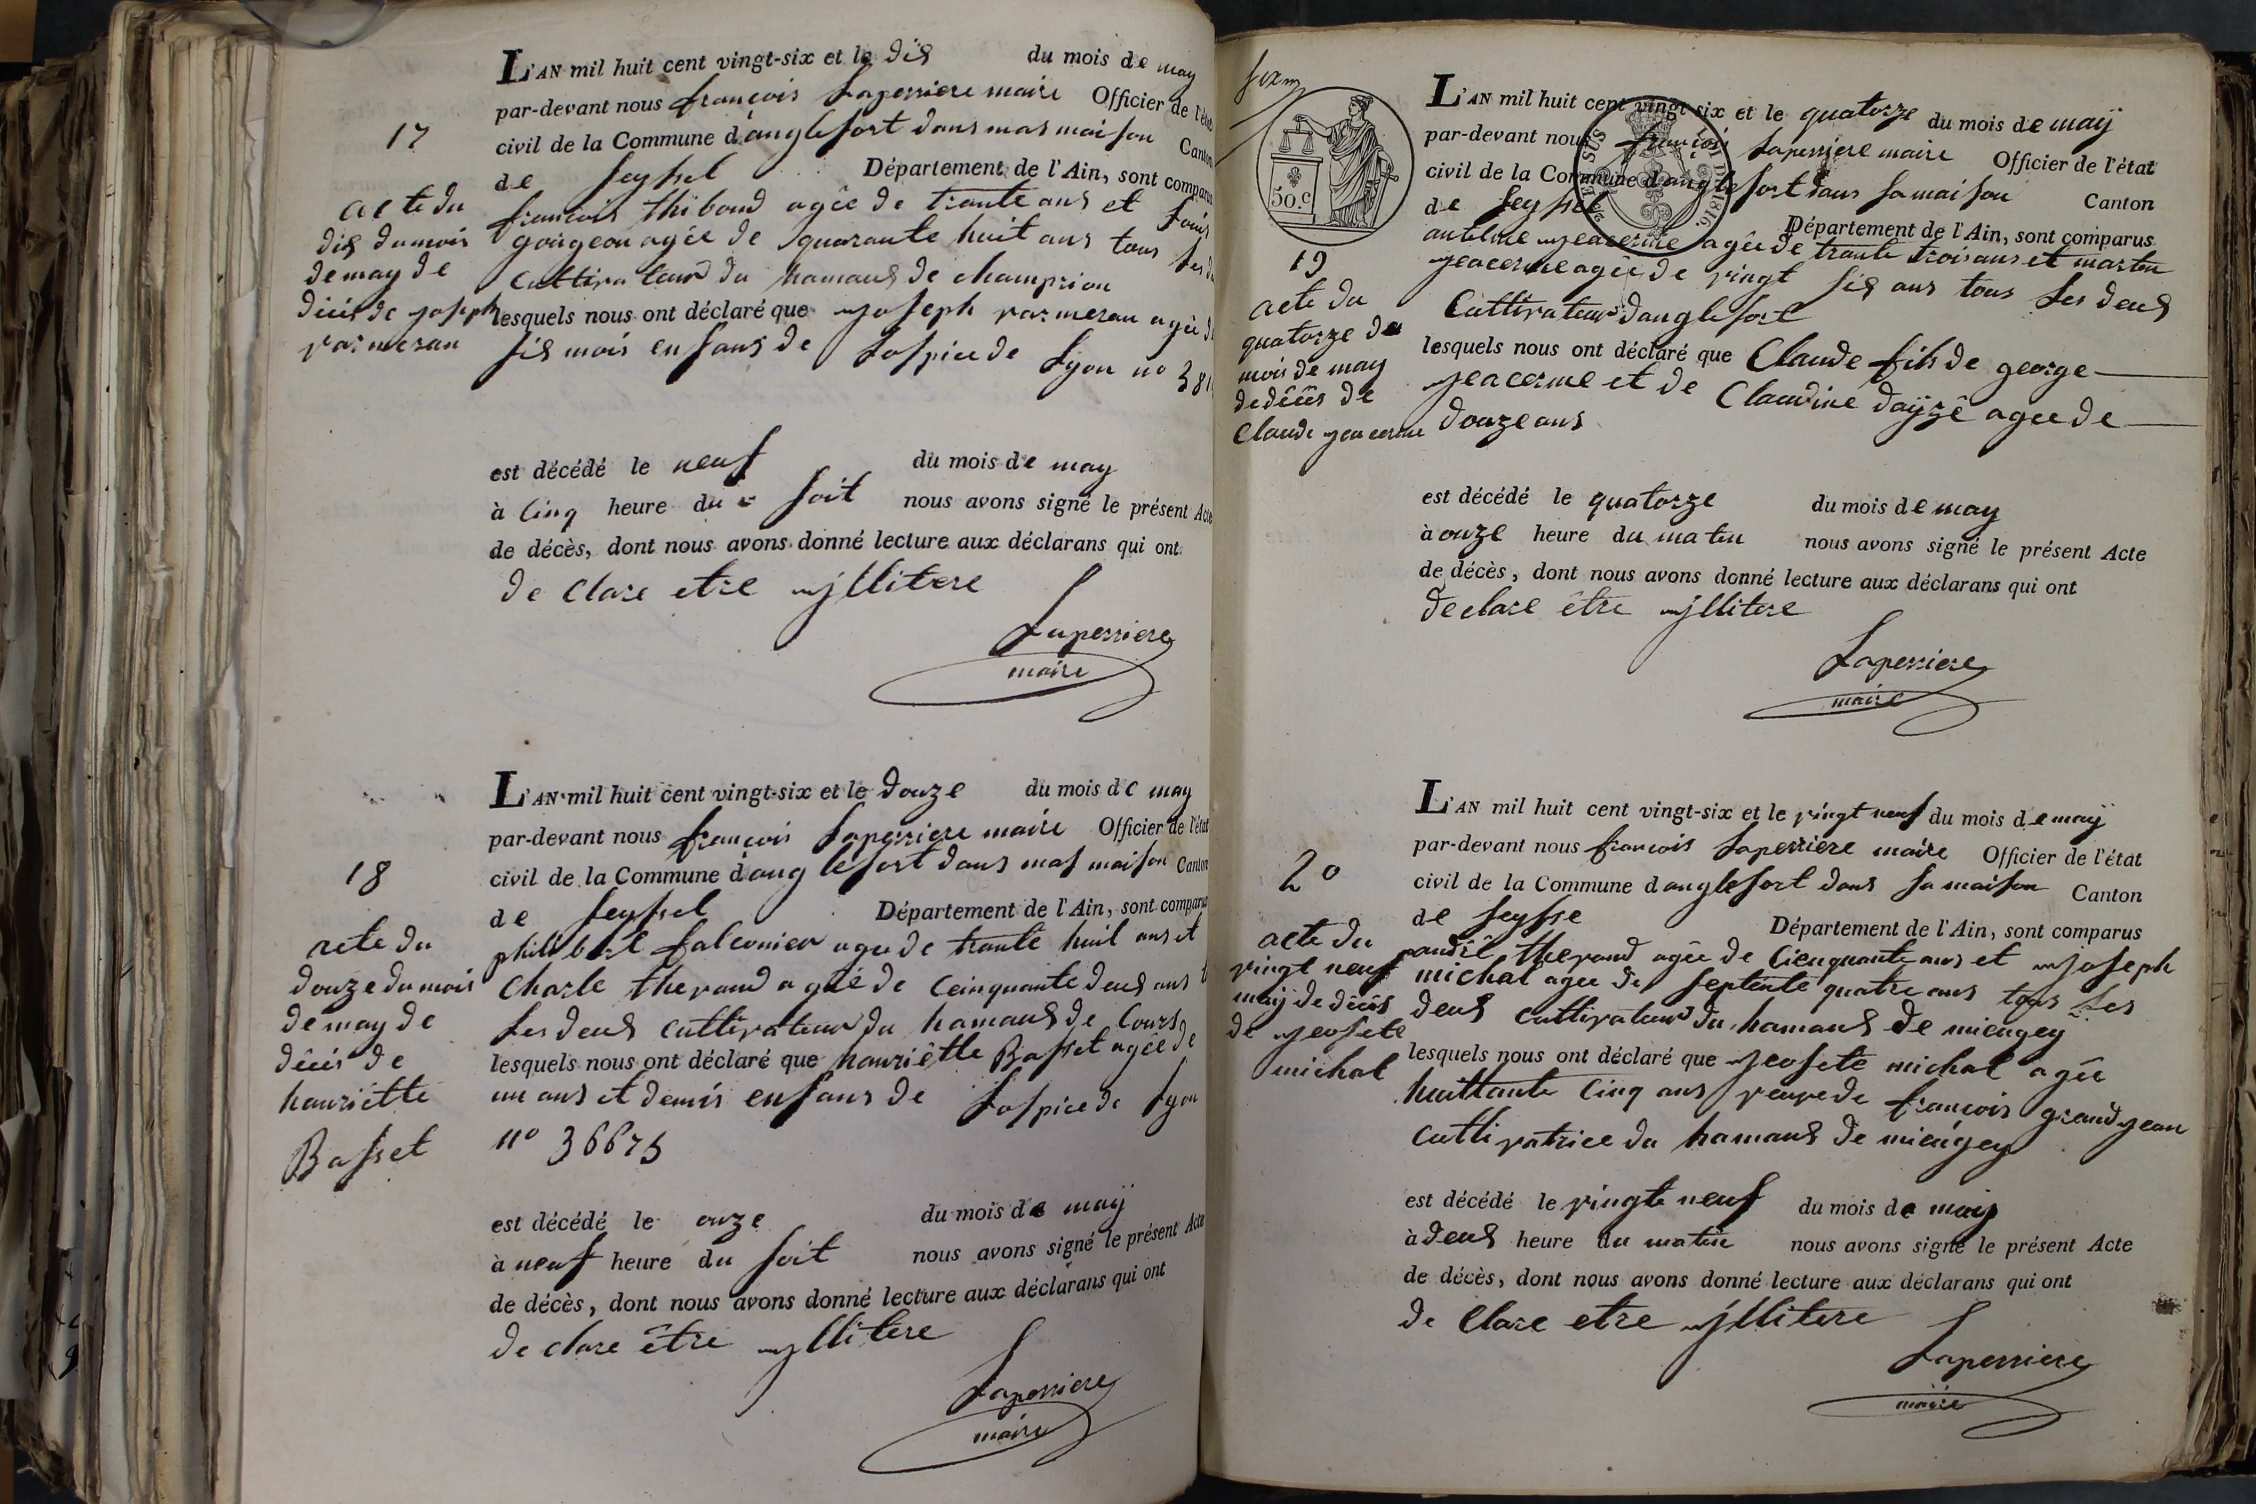 17
acte du
dix du mois
de may de
décés de joseph
parmesan
L'AN mil huit cent vingt-six et le dix du mois de may
par-devant nous françois Laperriere maire Officier de l'état
civil de la Commune d'anglefort dans mas maison Canton
de Seyssel Département de l'Ain, sont comparus
francois thiboud agée de trante ans et
gorgeon agée de quarante huit ans tous les
cultivateur du hamaux de champrion
lesquels nous ont déclaré que joseph parmesan agée
six mois enfans de Lospice de Lyon no
est décédé le neuf du mois de may
à Cinq heure du soit nous avons signé le présent Acte
de décès, dont nous avons donné lecture aux déclarans qui ont
de clare etre yllitere
Laperriere
maire
18
acte du
douze du mois
de may de
décés de
hanriétte
Basset
L'AN mil huit cent vingt-six et le douze du mois de may
par-devant nous françois Laperriere maire Officier de l'état
civil de la Commune d'anglefort dans mas maison Canton
de Seyssel Département de l'Ain, sont comparus
philibert falconier agee de trante huit ans et
Charle therand agée de Ceinquante deux ans
Les deux cultivateur du hamaux de Cours
lesquels nous ont déclaré que hanriétte Basset agée de
un ans et demis enfans de Lospice de Lyon
no 36675
est décédé le onze du mois de maÿ
à neuf heure du soit nous avons signé le présent Acte
de décès, dont nous avons donné lecture aux déclarans qui ont
de clare être yllitere
Laperriere
maire
50.c
LOI DE 1816.
19
acte du
quatorze du
mois de may
de décés de
Claude jeacerme
L'AN mil huit cent vingt-six et le quatorze du mois de maÿ
par-devant nous françois Laperriere maire Officier de l'état
civil de la Commune d'anglefort dans sa maison Canton
de Seyssel Département de l'Ain, sont comparus
antelme jeacerme agée de trante trois ans et martin
jeacerme agée de vingt six ans tous Les deux
Cultivateur d'anglefort
lesquels nous ont déclaré que Claude fils de george
jeacerme et de Claudine daÿzé agee de
douze ans
est décédé le quatorze du mois de may
à onze heure du matin nous avons signé le présent Acte
de décès, dont nous avons donné lecture aux déclarans qui ont
declare être yllitere
Laperriere
maire
20
acte du
vingt neuf
maÿ de décés
de jeosete
michal
L'AN mil huit cent vingt-six et le vingt neuf du mois de maÿ
par-devant nous francois Laperriere maire Officier de l'état
civil de la Commune d'anglefort dans sa maison Canton
de Seysse Département de l'Ain, sont comparus
andré therand agée de Cienquante ans et joseph
michal agee de septente quatre ans tous Les
deux cultivateur du hamaux de miengeÿ
lesquels nous ont déclaré que jeosete michal agée
huittante Cinq ans veuve de françois grandjean
cultivatrice du hamaux de miengey
est décédé le vingte neuf du mois de maÿ
à deux heure du matin nous avons signé le présent Acte
de décès, dont nous avons donné lecture aux déclarans qui ont
de Clare etre yllitere
Laperriere
maire